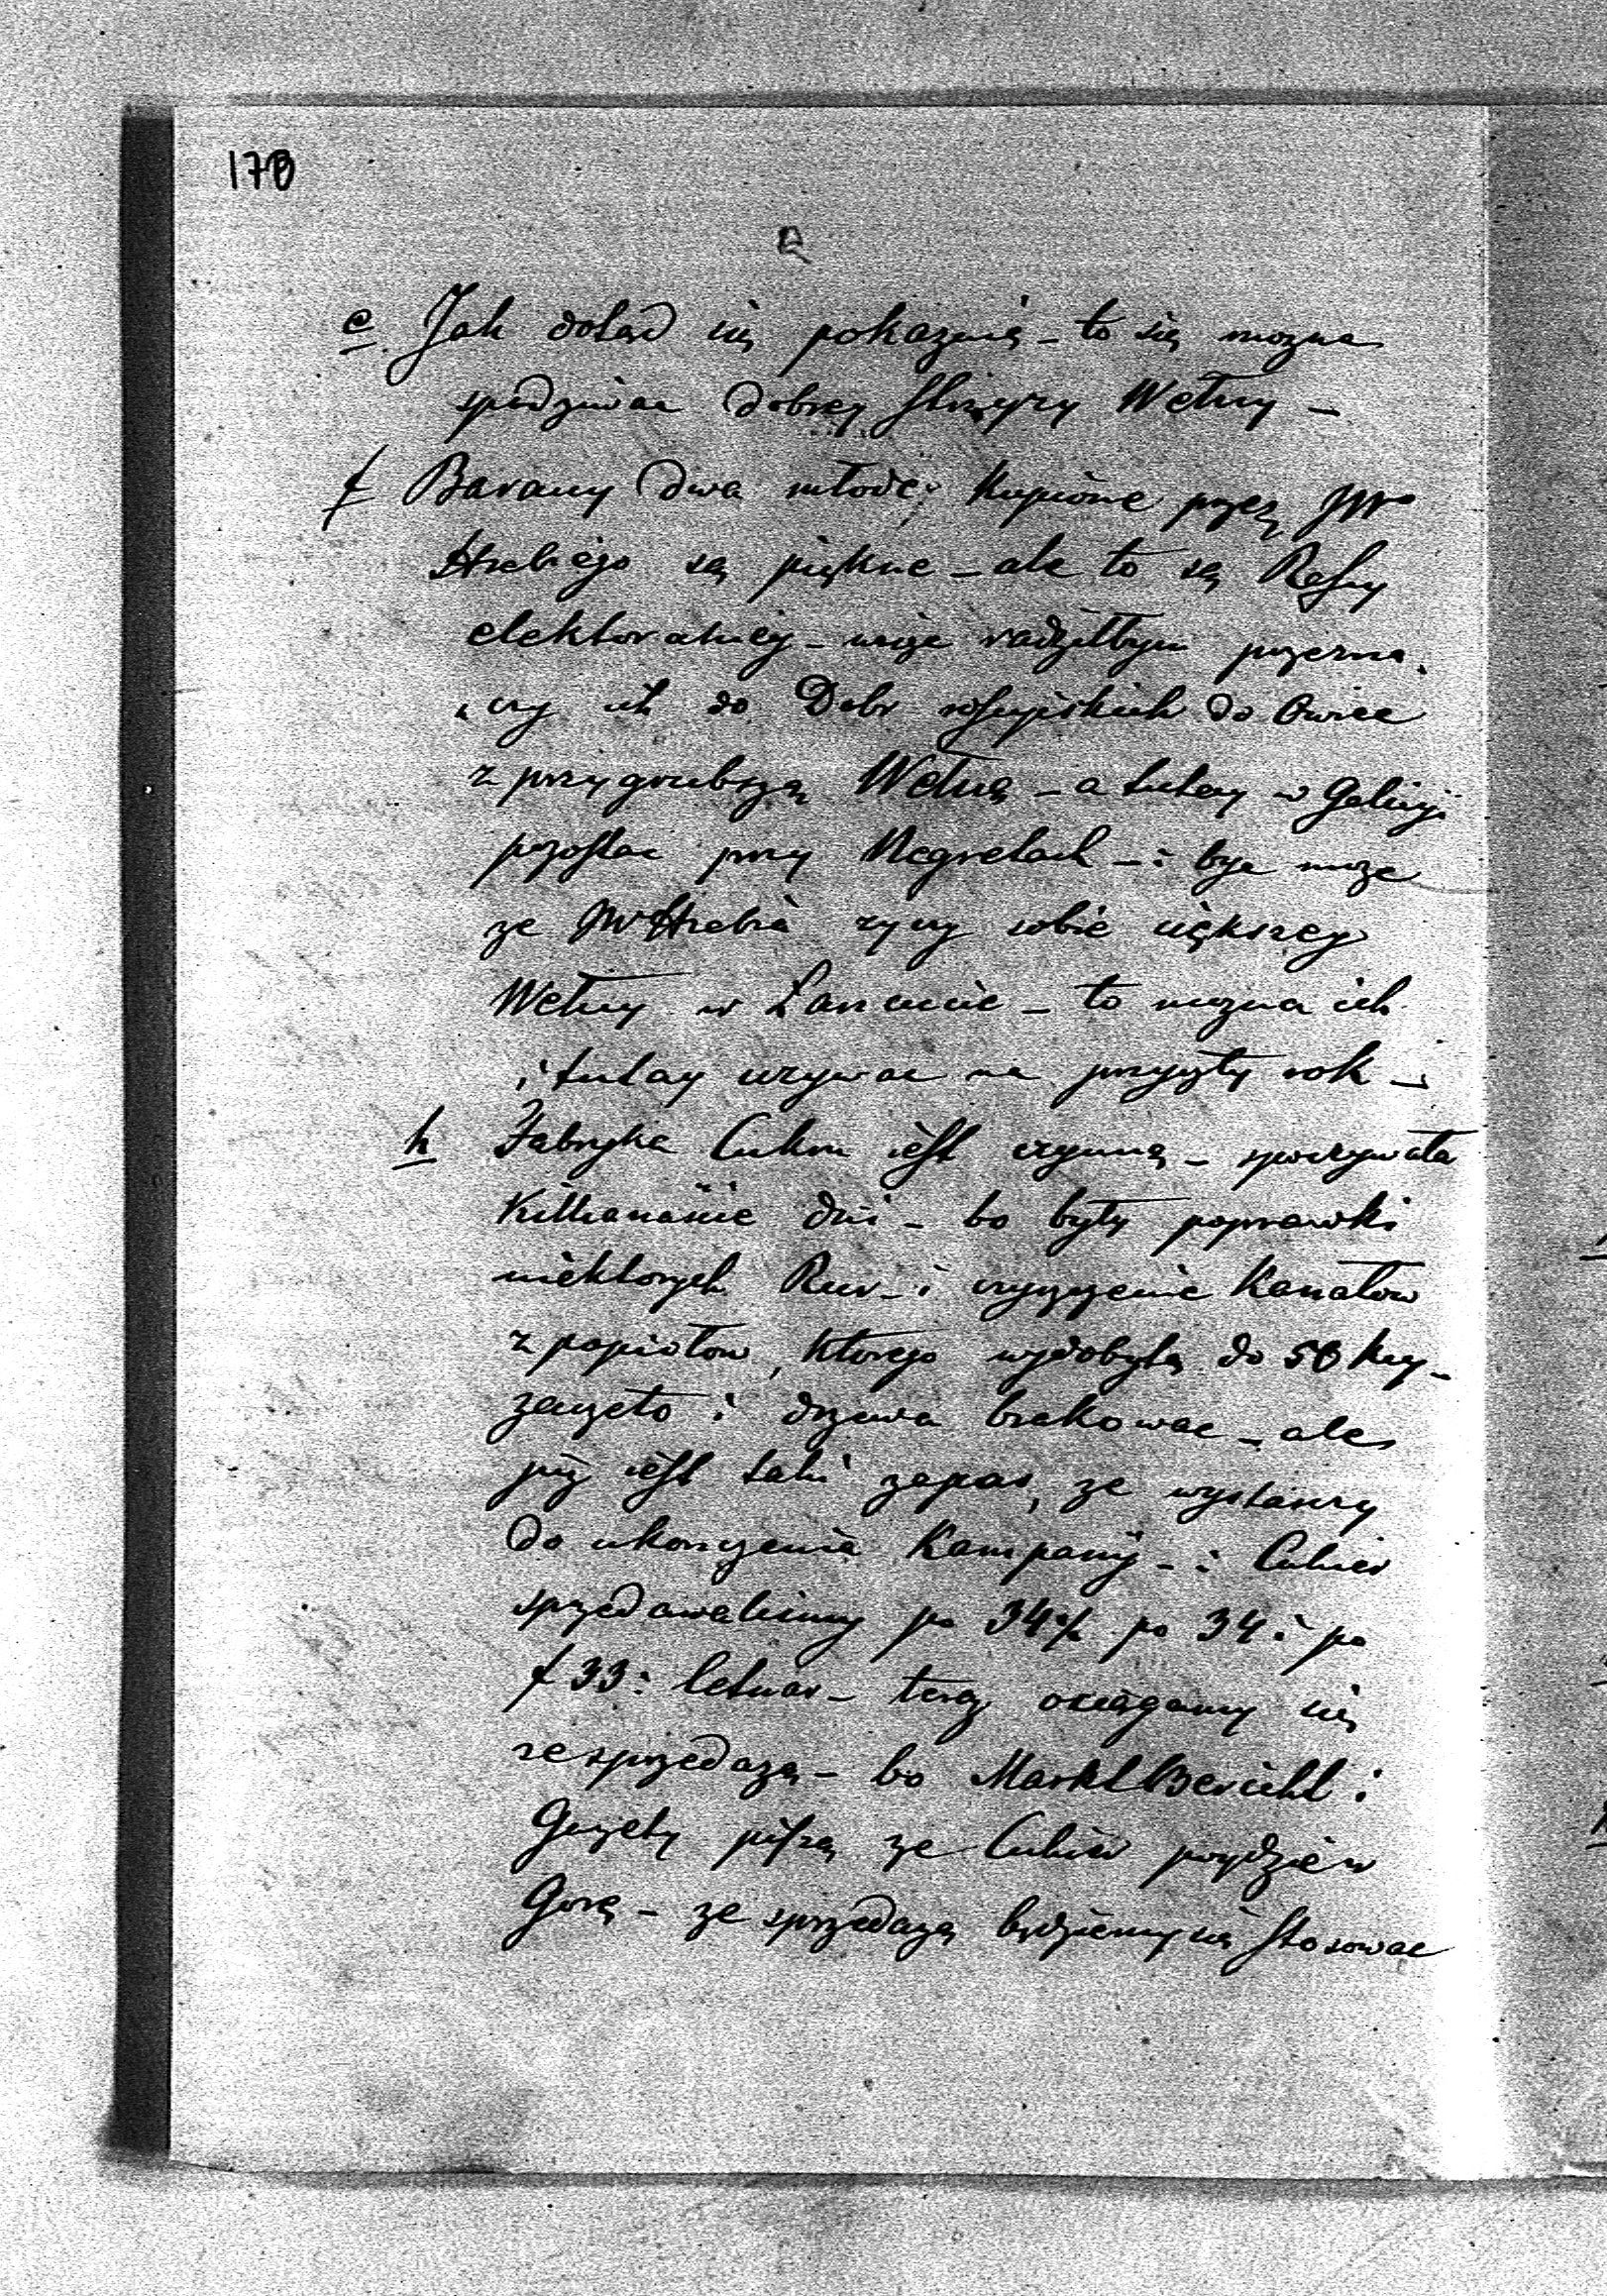 178
e Jak dotąd się pokazuią – to się mozna
spodziwac dobrey Strzyzy Wełny –
f Barany dwa młode, kupione przez JW
Hrabiego są piękne – ale to są Rassy
elektoralney – więc radziłbym przezna
czy ich do Dobr rossyiskich do Owiec
z przygrubszą Wełną – a tutey w Galicyi
pozostac przy Negretach – i byc moze
ze JW Hrabia zyczy sobie więkrzey
Wełny w Łancucie – to mozna ich
i tutay uzywac na przyszły rok –
h Fabryka Cukru iest czynną – spoczywała
Kilkanaście dni – bo były poprawki
niektorych Rur – i czyszczenie Kanałow
z popiołow, ktorego wydobyłą do 50 kry –
zaczeto i drzewa brakowac – ale
iuz iest taki zapas, ze wystarczy
do ukonczenia Kampanij – i Cukier
sprzedawalismy po 34½ po 34 i po
f 33: Cetnar – teraz ociągamy się
ze sprzedazą – bo MarktBericht i
Gazety piszą ze Cukier poydzie w
Gorę – ze sprzedazą będziemy się stosowac